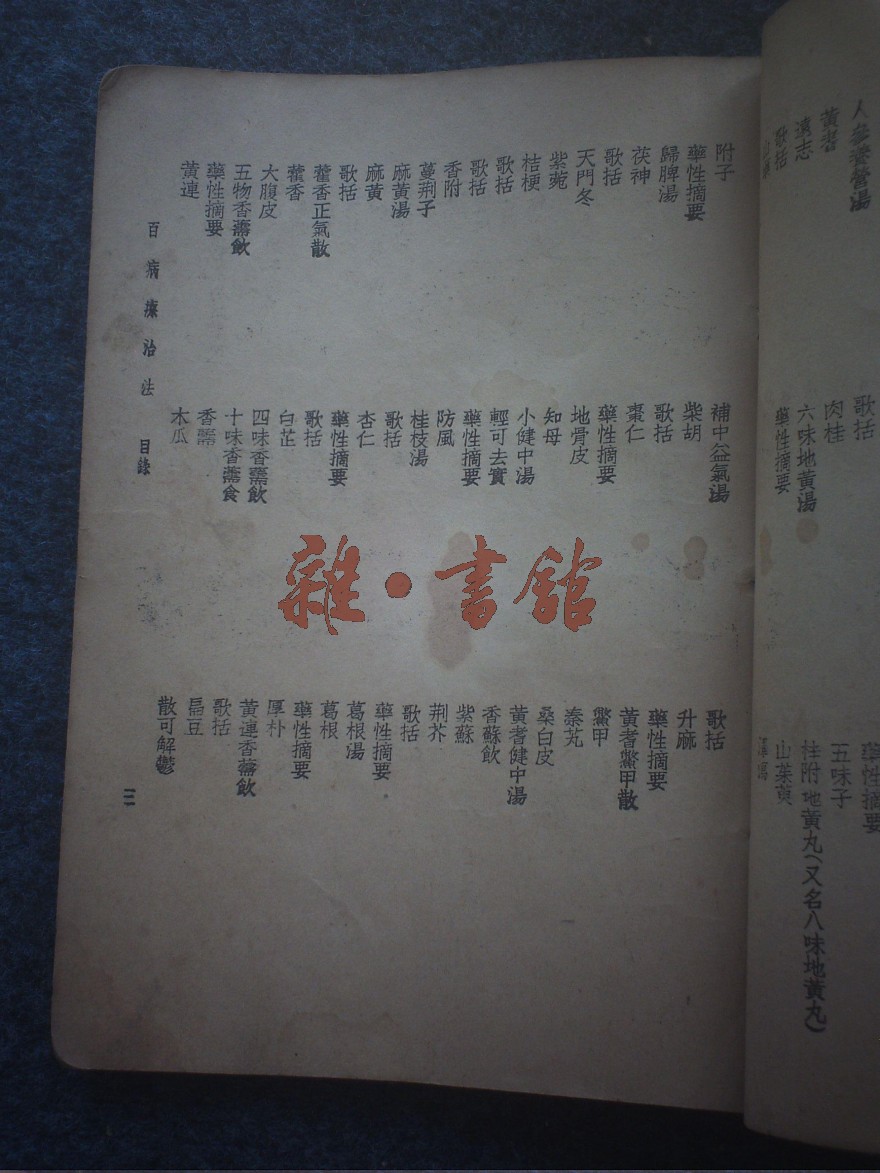 人參養營湯
黃耆
遠志
歌括
歌括
肉桂
六味地黃湯
藥性摘要
藥性摘要
五味子
桂附地黃丸(又名八味地黃丸)
山茱萸
附子
藥性摘要
歸脾湯
茯神
歌括
天門冬
紫菀
桔梗
歌括
歌括
香附
蔓荊子
麻黃湯
麻黃
歌括
藿香正氣散
藿香
大腹皮
五物香薷飲
藥性摘要
黃連
補中益氣湯
柴胡
歌括
棗仁
藥性摘要
地骨皮
知母
小健中湯
輕可去實
藥性摘要
防風
桂枝湯
歌括
杏仁
藥性摘要
歌括
白芷
四味香薷飲
十味香薷食
香薷
木瓜
歌括
升麻
藥性摘要
黃耆鱉甲散
鱉甲
秦艽
桑白皮
黃耆健中湯
香蘇飲
紫蘇
荊芥
歌括
藥性摘要
葛根湯
葛根
藥性摘要
厚朴
黃連香薷飲
歌括
扁豆
散可解鬱
百病療治法 目錄
三
雜·書館